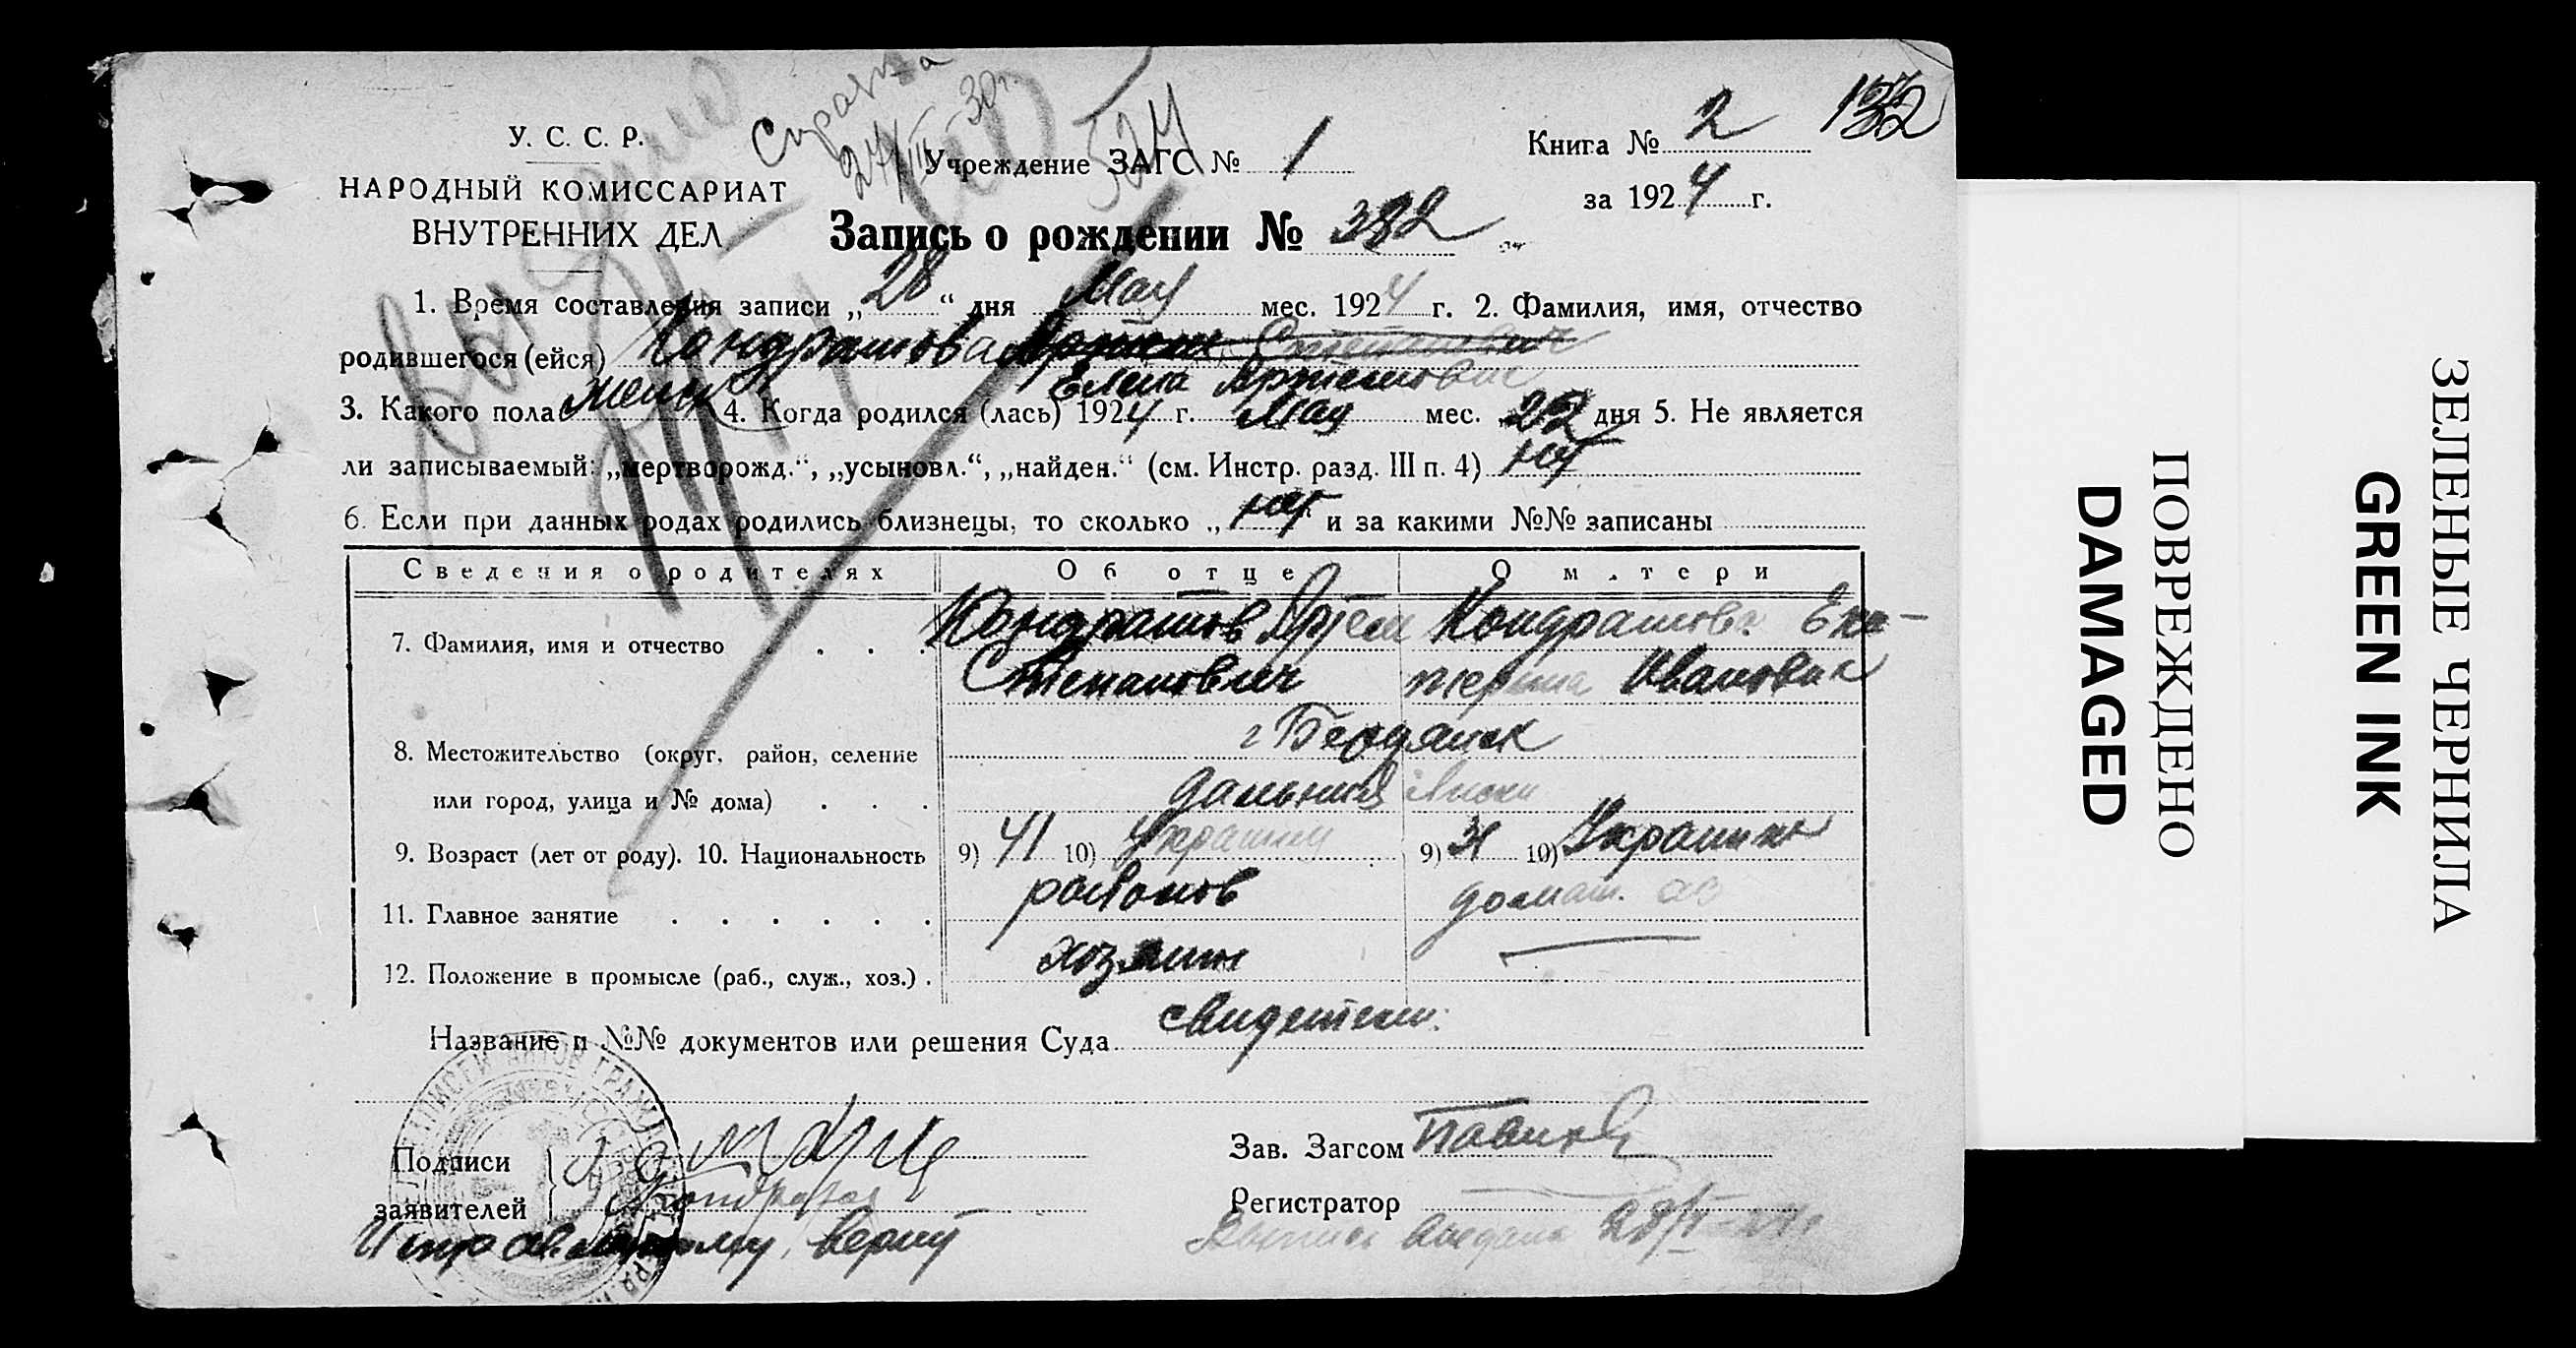 Справка
27/III-30г.
У. С. С. Р.
НАРОДНЫЙ КОМИССАРИАТ
ВНУТРЕННИХ ДЕЛ
Учреждение ЗАГС № 1
Книга № 2
132
за 1924 г.
Запись о рождении № 382
1. Время составления записи „28“ дня Мая мес. 1924 г. 2. Фамилия, имя, отчество
родившегося (ейся) Кондратова Артем Степанович
Елена Артемовна
3. Какого пола женск 4. Когда родился (лась) 1924 г. Мая мес. 22 дня 5. Не является
ли записываемый: „мертворожд.“, „усыновл.“, „найден.“ (см. Инстр. разд. III п. 4) нет
6. Если при данных родах родились близнецы, то сколько „нет“ и за какими №№ записаны
Сведения о родителях Об отце О матери
7. Фамилия, имя и отчество Кондратов Артем Кондратова Ека-
Степанович терина Ивановна
8. Местожительство (округ, район, селение г Бердянск
или город, улица и № дома) Дальния
9. Возраст (лет от роду). 10. Национальность 9) 41 10) Украинец 9) 31 10) Украинка
11. Главное занятие домаш.
12. Положение в промысле (раб., служ., хоз.) хозяин
Название и №№ документов или решения Суда свидетели:
Подписи
заявителей
Зав. Загсом
Регистратор
верит
выдана 28/V-24г
ПОВРЕЖДЕНО
DAMAGED
ЗЕЛЕНЫЕ ЧЕРНИЛА
GREEN INK